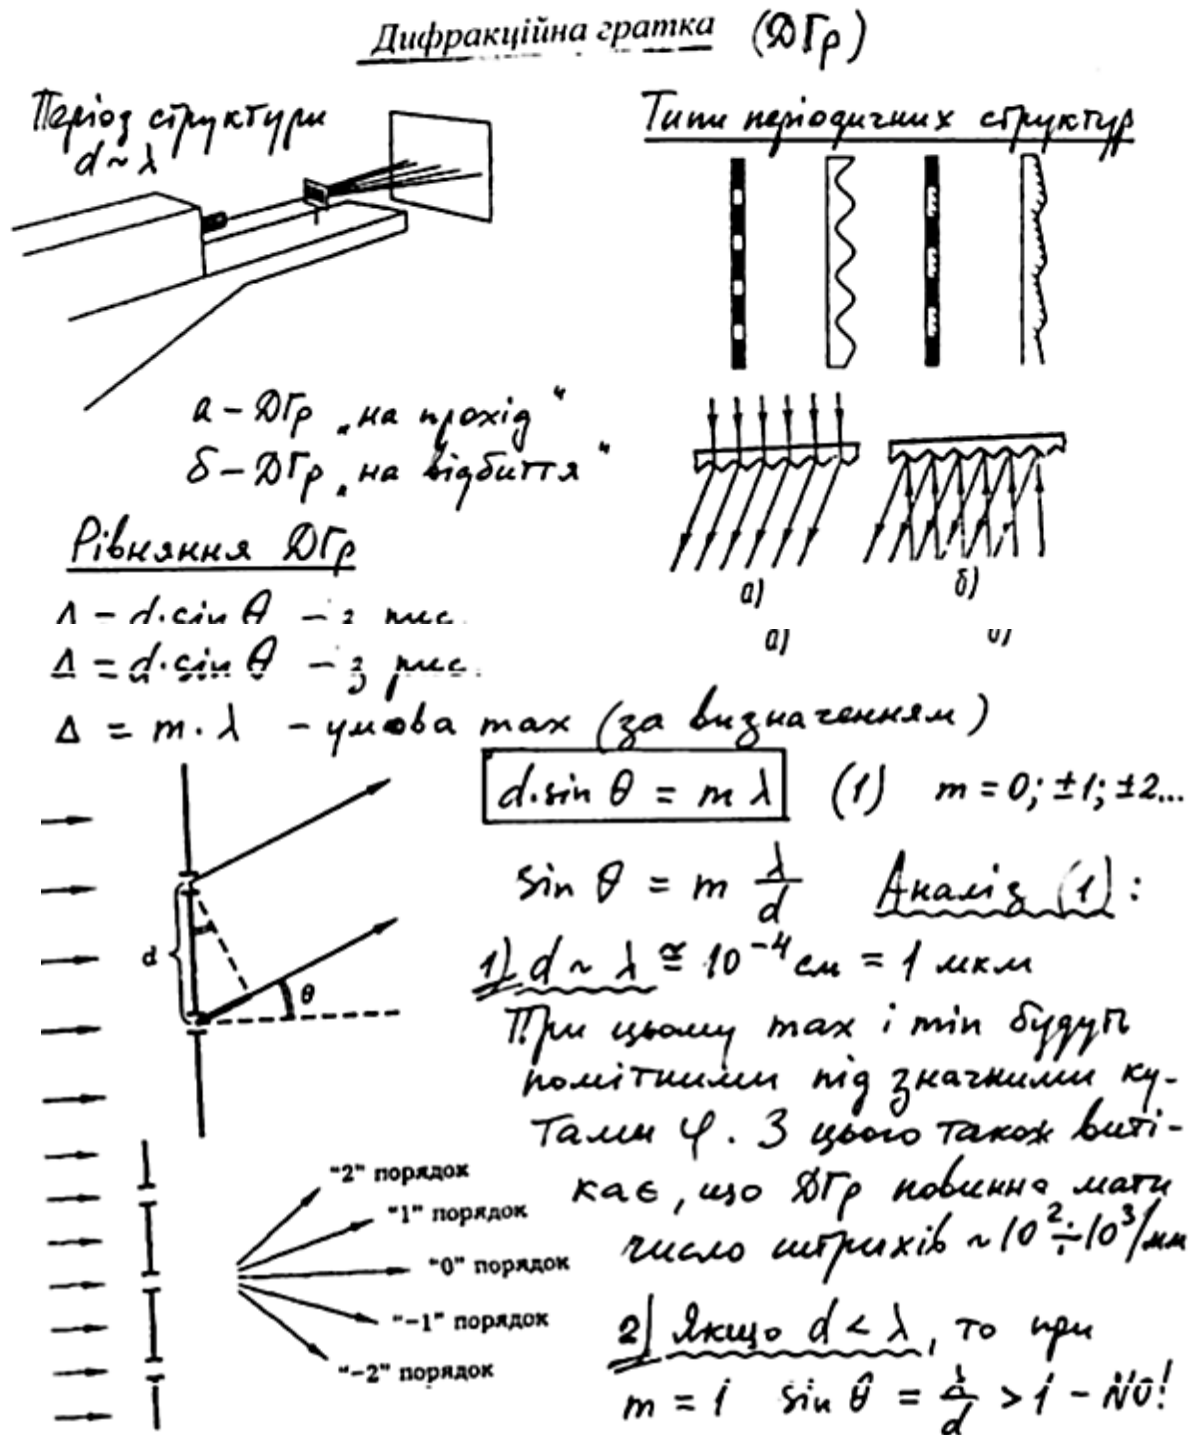 Дифракційна гратка (ДГр)
Період структури
d ~ λ
Типи періодичних структур
а – ДГр „на прохід“
б – ДГр „на відбиття“
а)
б)
Рівняння ДГр
Δ = d·sin θ – з рис.
Δ = d·sin θ – з рис.
а)
б)
Δ = m·λ – умова max (за визначенням)
d·sin θ = m λ (1) m = 0; ±1; ±2...
sin θ = m λ/d Аналіз (1):
d
θ
1) d ~ λ ≅ 10⁻⁴ см = 1 мкм
При цьому max і min будуть
помітними під значними ку-
тами φ. З цього також виті-
кає, що ДГр повинна мати
число штрихів ~ 10² ÷ 10³/мм
"2" порядок
"1" порядок
"0" порядок
"−1" порядок
"−2" порядок
2) Якщо d < λ, то при
m = 1 sin θ = λ/d > 1 – NO!